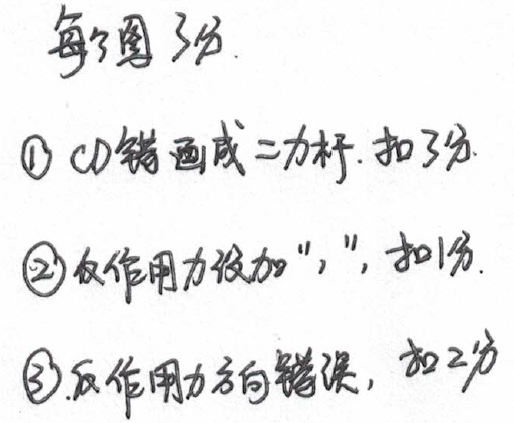 每个图3分.
① CD错画成二力杆.扣3分.
②反作用力没加“,”,扣1分.
③.反作用力方向错误,扣2分